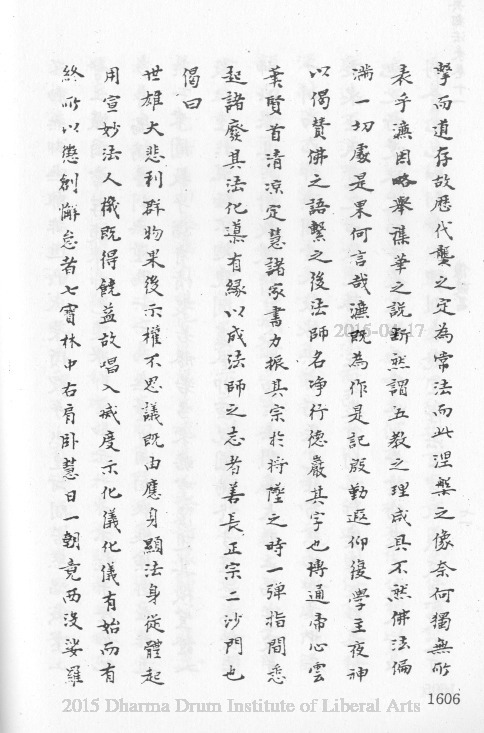 擊而道存故歷代襲之定為常法而此涅槃之像奈何獨無所
表乎濂因略舉襍華之說斷然謂五教之理咸具不然佛法徧
滿一切處是果何言哉濂既為作是記殷勤遐仰復學主夜神
以偈贊佛之語繫之後法師名淨行德嚴其字也博通帝心雲
華賢首清涼定慧諸家書力振其宗於將墜之時一彈指間悉
起諸廢其法化導有緣以成法師之志者善長正宗二沙門也
偈曰
世雄大悲利群物果後示權不思議既由應身顯法身從體起
用宣妙法人機既得饒益故唱入滅度示化儀化儀有始而有
終所以懲創懈怠者七寶林中右肩臥慧日一朝竟西沒娑羅
1606
2015-04-17
2015 Dharma Drum Institute of Liberal Arts